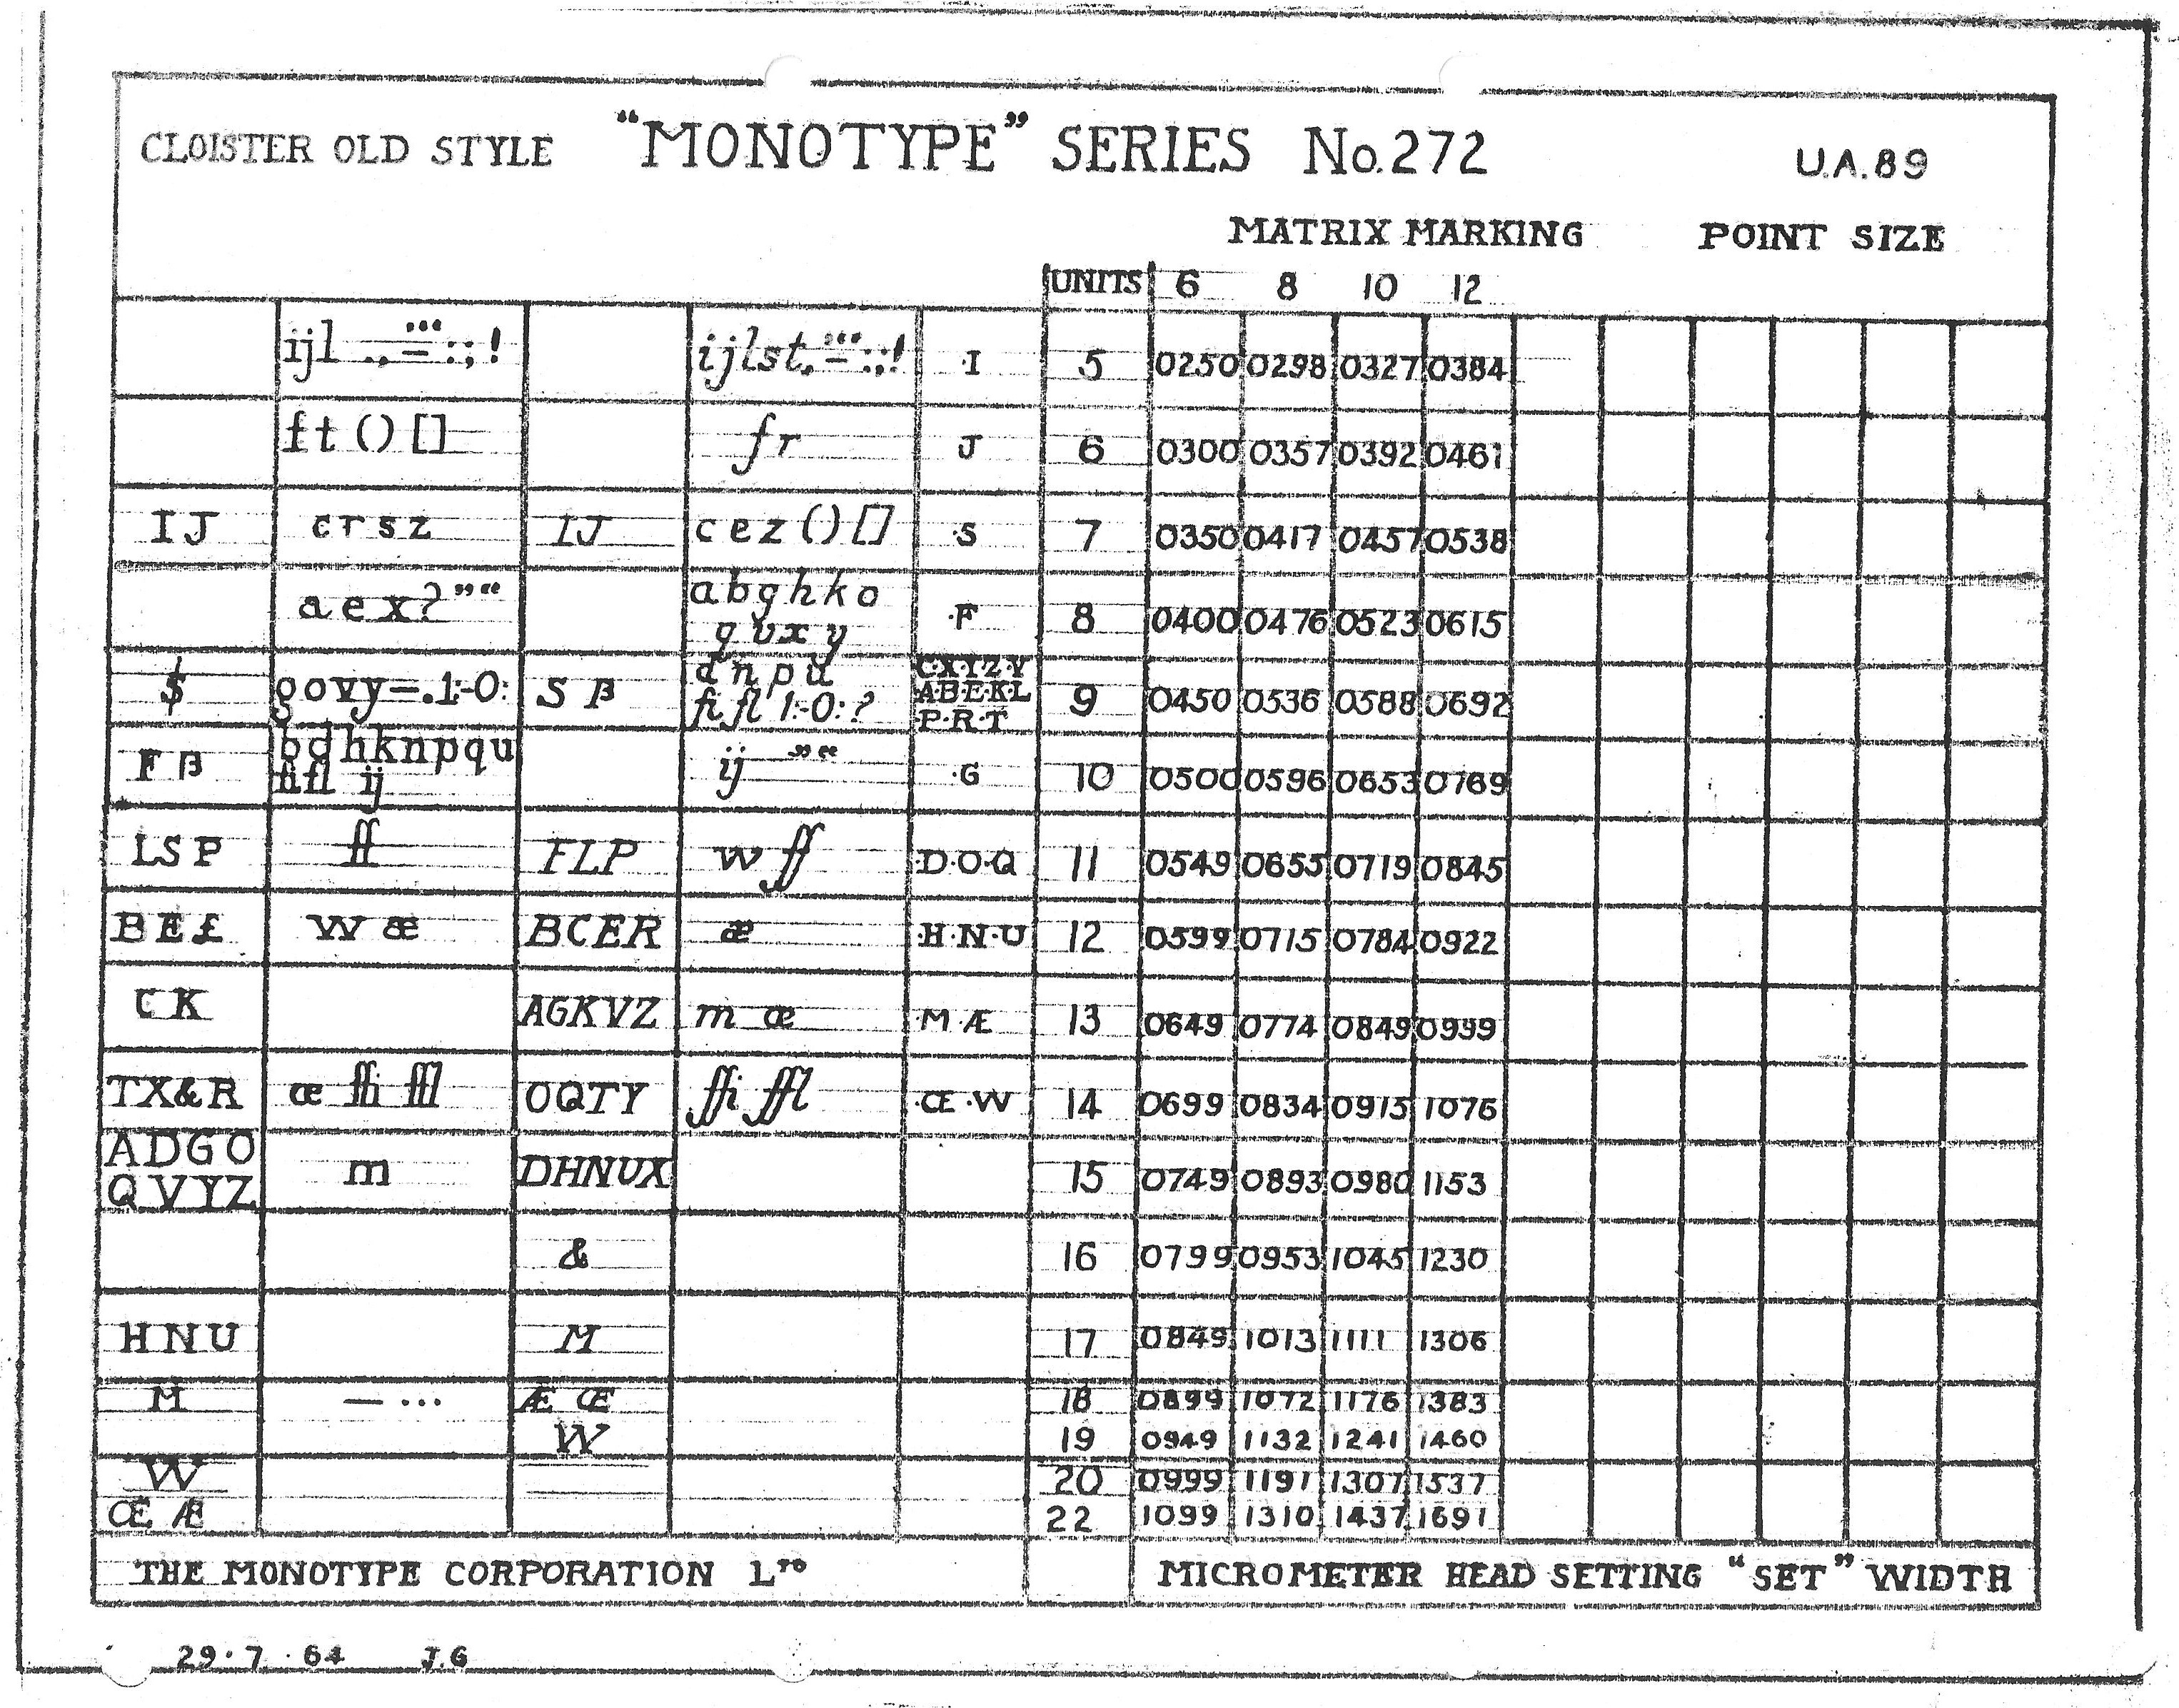 CLOISTER OLD STYLE “MONOTYPE” SERIES No. 272 U.A.89
MATRIX MARKING POINT SIZE
UNITS 6 8 10 12
ijl ., ‘’ - : ; ! ijlst., ‘’ - : ; ! ·I 5 0250 0298 0327 0384
f t ( ) [ ] f r J 6 0300 0357 0392 0461
I J c r s z I J c e z ( ) [ ] ·S 7 0350 0417 0457 0538
a e x ? ” “ a b g h k o ·F 8 0400 0476 0523 0615
q v x y
$ g o v y = . 1 :-0: S ß d n p u C·X·Y·Z·V 9 0450 0536 0588 0692
fi fl 1:-0: ? A·B·E·K·L
P·R·T
F ß b d h k n p q u ij ” “ ·G 10 0500 0596 0653 0769
fi fl ij
L S P ff F L P w ff ·D·O·Q 11 0549 0655 0719 0845
B E £ w æ B C E R æ ·H·N·U 12 0599 0715 0784 0922
C K A G K V Z m œ ·M·Æ 13 0649 0774 0849 0999
T X & R œ ffi ffl O Q T Y ffi ffl ·Œ·W 14 0699 0834 0915 1076
A D G O m D H N U X 15 0749 0893 0980 1153
Q V Y Z
& 16 0799 0953 1045 1230
H N U M 17 0849 1013 1111 1306
M — ... Æ Œ 18 0899 1072 1176 1383
W 19 0949 1132 1241 1460
W 20 0999 1191 1307 1537
Œ Æ 22 1099 1310 1437 1691
THE MONOTYPE CORPORATION LTD MICROMETER HEAD SETTING “SET” WIDTH
29·7·64 J.G